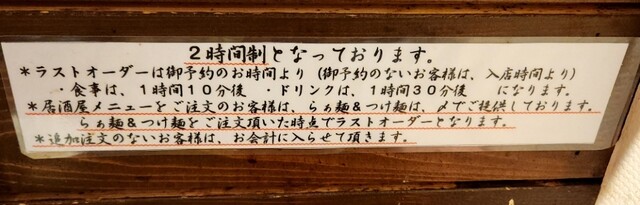 2時間制となっております。
*ラストオーダーは御予約のお時間より(御予約のないお客様は、入店時間より)
・食事は、1時間10分後 ・ドリンクは、1時間30分後 になります。
*居酒屋メニューをご注文のお客様は、らぁ麺&つけ麺は、〆でご提供しております。
らぁ麺&つけ麺をご注文頂いた時点でラストオーダーとなります。
*追加注文のないお客様は、お会計に入らせて頂きます。